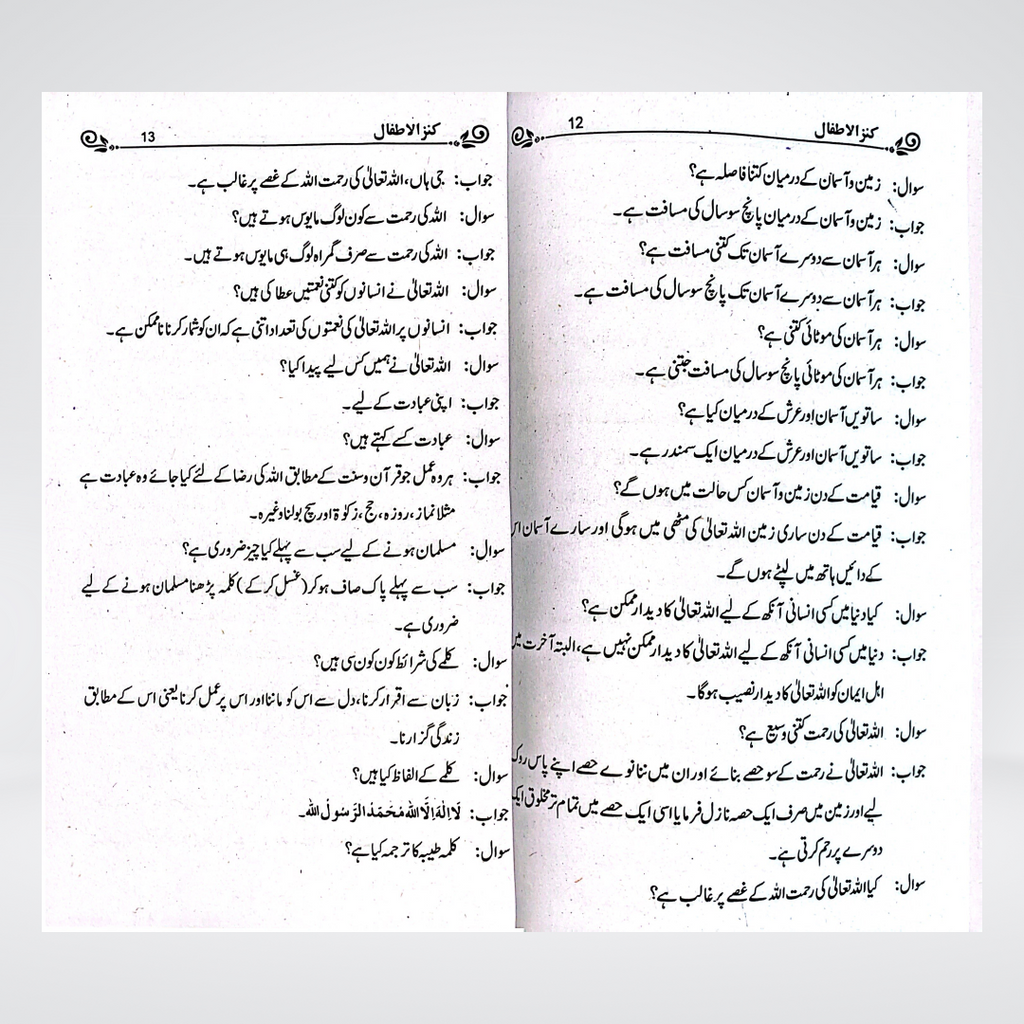 کنز الاطفال 12
سوال: زمین و آسمان کے درمیان کتنا فاصلہ ہے؟
جواب: زمین و آسمان کے درمیان پانچ سو سال کی مسافت ہے۔
سوال: ہر آسمان سے دوسرے آسمان تک کتنی مسافت ہے؟
جواب: ہر آسمان سے دوسرے آسمان تک پانچ سو سال کی مسافت ہے۔
سوال: ہر آسمان کی موٹائی کتنی ہے؟
جواب: ہر آسمان کی موٹائی پانچ سو سال کی مسافت جتنی ہے۔
سوال: ساتویں آسمان اور عرش کے درمیان کیا ہے؟
جواب: ساتویں آسمان اور عرش کے درمیان ایک سمندر ہے۔
سوال: قیامت کے دن زمین و آسمان کس حالت میں ہوں گے؟
جواب: قیامت کے دن ساری زمین اللہ تعالیٰ کی مٹھی میں ہوگی اور سارے آسمان اس
کے دائیں ہاتھ میں لپٹے ہوں گے۔
سوال: کیا دنیا میں کسی انسانی آنکھ کے لیے اللہ تعالیٰ کا دیدار ممکن ہے؟
جواب: دنیا میں کسی انسانی آنکھ کے لیے اللہ تعالیٰ کا دیدار ممکن نہیں ہے، البتہ آخرت میں
اہل ایمان کو اللہ تعالیٰ کا دیدار نصیب ہوگا۔
سوال: اللہ تعالیٰ کی رحمت کتنی وسیع ہے؟
جواب: اللہ تعالیٰ نے رحمت کے سو حصے بنائے اور ان میں ننانوے حصے اپنے پاس روک
لیے اور زمین میں صرف ایک حصہ نازل فرمایا اسی ایک حصے میں تمام تر مخلوق ایک
دوسرے پر رحم کرتی ہے۔
سوال: کیا اللہ تعالیٰ کی رحمت اللہ کے غصے پر غالب ہے؟
کنز الاطفال 13
جواب: جی ہاں، اللہ تعالیٰ کی رحمت اللہ کے غصے پر غالب ہے۔
سوال: اللہ کی رحمت سے کون لوگ مایوس ہوتے ہیں؟
جواب: اللہ کی رحمت سے صرف گمراہ لوگ ہی مایوس ہوتے ہیں۔
سوال: اللہ تعالیٰ نے انسانوں کو کتنی نعمتیں عطا کی ہیں؟
جواب: انسانوں پر اللہ تعالیٰ کی نعمتوں کی تعداد اتنی ہے کہ ان کو شمار کرنا ناممکن ہے۔
سوال: اللہ تعالیٰ نے ہمیں کس لیے پیدا کیا؟
جواب: اپنی عبادت کے لیے۔
سوال: عبادت کسے کہتے ہیں؟
جواب: ہر وہ عمل جو قرآن و سنت کے مطابق اللہ کی رضا کے لئے کیا جائے وہ عبادت ہے
مثلا نماز، روزہ، حج، زکوٰۃ اور سچ بولنا وغیرہ۔
سوال: مسلمان ہونے کے لیے سب سے پہلے کیا چیز ضروری ہے؟
جواب: سب سے پہلے پاک صاف ہو کر (غسل کر کے) کلمہ پڑھنا مسلمان ہونے کے لیے
ضروری ہے۔
سوال: کلمے کی شرائط کون کون سی ہیں؟
جواب: زبان سے اقرار کرنا، دل سے اس کو ماننا اور اس پر عمل کرنا یعنی اس کے مطابق
زندگی گزارنا۔
سوال: کلمے کے الفاظ کیا ہیں؟
جواب: لَا اِلٰهَ اِلَّا اللّٰهُ مُحَمَّدُ الرَّسُولُ اللّٰه۔
سوال: کلمہ طیبہ کا ترجمہ کیا ہے؟